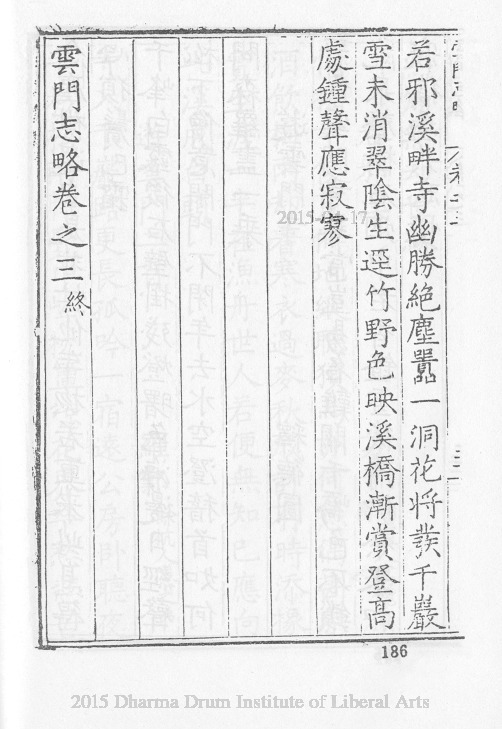 若邪溪畔寺幽勝絶塵囂一洞花将發千巖
雪未消翠陰生逕竹野色映溪橋漸賞登高
處鍾聲應寂寥
雲門志略卷之三終
186
2015 Dharma Drum Institute of Liberal Arts